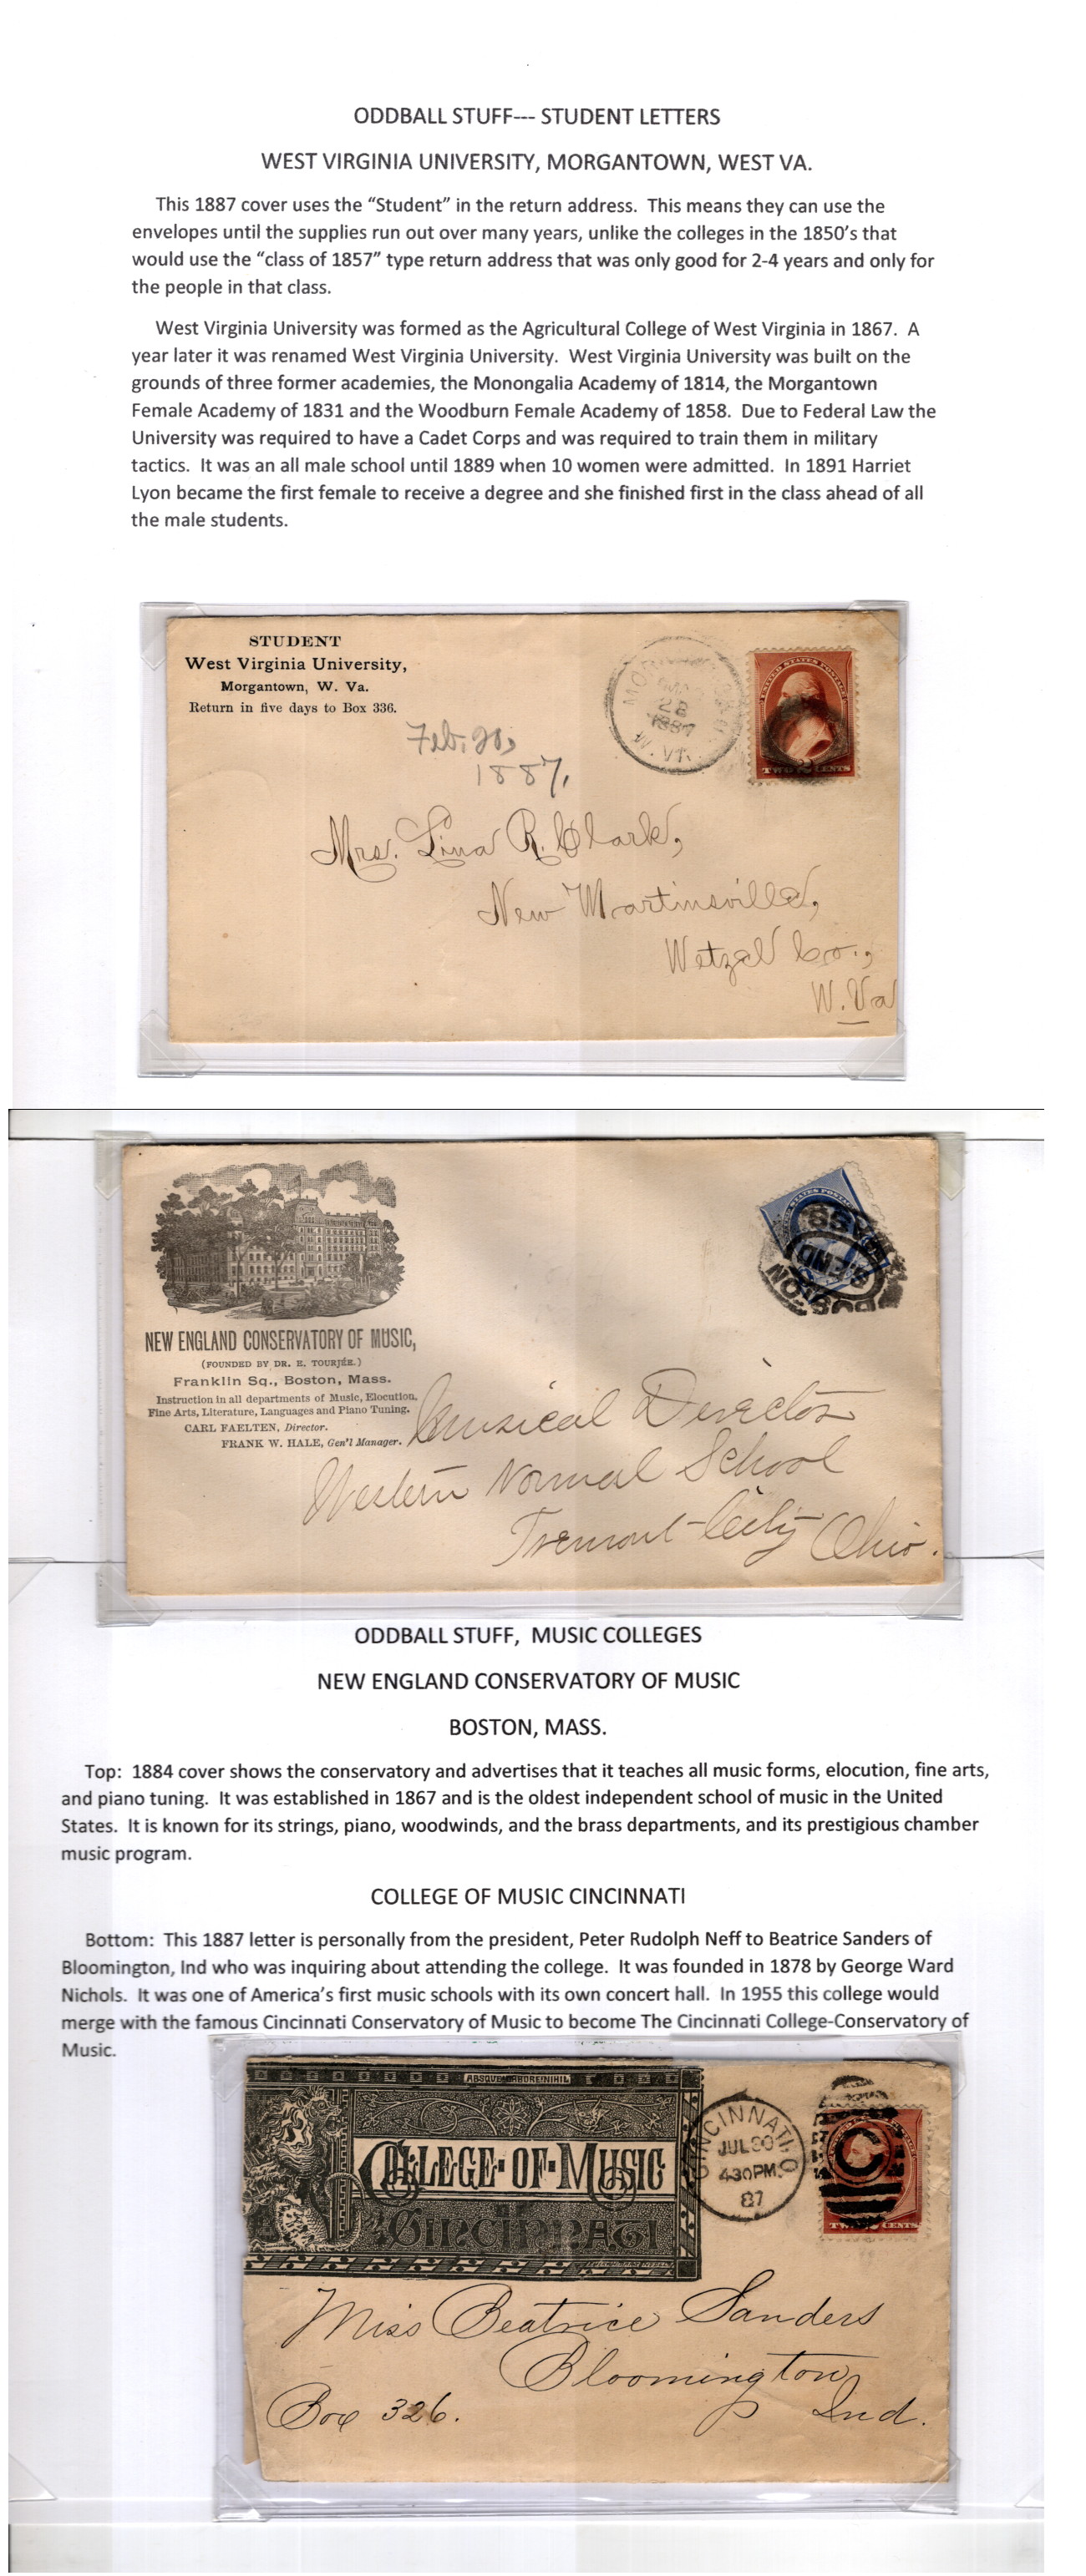 ODDBALL STUFF--- STUDENT LETTERS
WEST VIRGINIA UNIVERSITY, MORGANTOWN, WEST VA.
This 1887 cover uses the “Student” in the return address.  This means they can use the
envelopes until the supplies run out over many years, unlike the colleges in the 1850’s that
would use the “class of 1857” type return address that was only good for 2-4 years and only for
the people in that class.
West Virginia University was formed as the Agricultural College of West Virginia in 1867.  A
year later it was renamed West Virginia University.  West Virginia University was built on the
grounds of three former academies, the Monongalia Academy of 1814, the Morgantown
Female Academy of 1831 and the Woodburn Female Academy of 1858.  Due to Federal Law the
University was required to have a Cadet Corps and was required to train them in military
tactics.  It was an all male school until 1889 when 10 women were admitted.  In 1891 Harriet
Lyon became the first female to receive a degree and she finished first in the class ahead of all
the male students.
STUDENT
West Virginia University,
Morgantown, W. Va.
Return in five days to Box 336.
28
1887
W. VA.
UNITED STATES POSTAGE
TWO 2 CENTS
Feb. 28,
1887,
Mrs. Lina R. Clark,
New Martinsville,
Wetzel Co.,
W. Va
NEW ENGLAND CONSERVATORY OF MUSIC,
(FOUNDED BY DR. E. TOURJÉE.)
Franklin Sq., Boston, Mass.
Instruction in all departments of Music, Elocution,
Fine Arts, Literature, Languages and Piano Tuning.
CARL FAELTEN, Director.
FRANK W. HALE, Gen'l Manager.
BOSTON
MASS
Musical Director
Western Normal School
Tremont City Ohio.
ODDBALL STUFF,  MUSIC COLLEGES
NEW ENGLAND CONSERVATORY OF MUSIC
BOSTON, MASS.
Top:  1884 cover shows the conservatory and advertises that it teaches all music forms, elocution, fine arts,
and piano tuning.  It was established in 1867 and is the oldest independent school of music in the United
States.  It is known for its strings, piano, woodwinds, and the brass departments, and its prestigious chamber
music program.
COLLEGE OF MUSIC CINCINNATI
Bottom:  This 1887 letter is personally from the president, Peter Rudolph Neff to Beatrice Sanders of
Bloomington, Ind who was inquiring about attending the college.  It was founded in 1878 by George Ward
Nichols.  It was one of America’s first music schools with its own concert hall.  In 1955 this college would
merge with the famous Cincinnati Conservatory of Music to become The Cincinnati College-Conservatory of
Music.
COLLEGE·OF·MUSIC
CINCINNATI
CINCINNATI. O
JUL 30
4 30 PM
87
C
CENTS
Miss Beatrice Sanders
Bloomington
Box 326.
Ind.